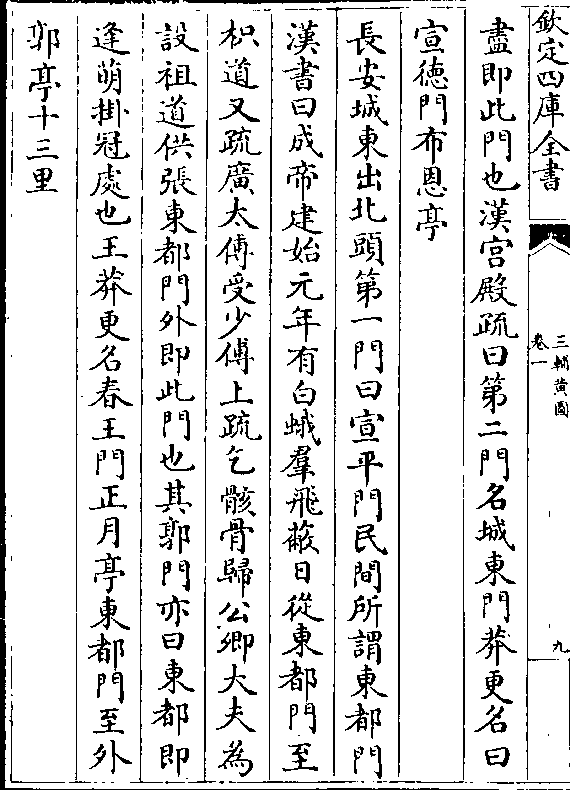 欽定四庫全書
三輔黃圖
卷一
九
盡即此門也漢宫殿疏曰第二門名城東門莽更名曰
宣德門布恩亭
長安城東出北頭第一門曰宣平門民間所謂東都門
漢書曰成帝建始元年有白蛾羣飛蔽日從東都門至
枳道又疏廣太傅受少傅上疏乞骸骨歸公卿大夫為
設祖道供張東都門外即此門也其郭門亦曰東都即
逢萌掛冠處也王莽更名春王門正月亭東都門至外
郭亭十三里